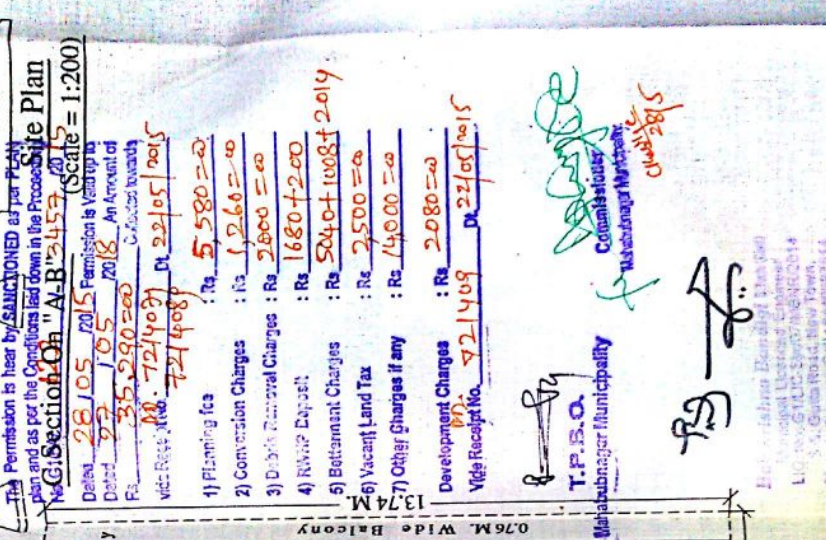 The Permission is hear by SANCTIONED as per PLAN
plan and as per the Conditions laid down in the Proceedings
Site Plan
Section On "A-B"
(Scale = 1:200)
3457
Dated 28/05/2015 Permission is Valid up to
Dated 27/05/2018 An Amount of
Rs. 35,290=00 Collected towards
vide Receipt No. DD. 721407 Dt. 22/05/2015
721408
1) Planning fee : Rs 5,580=00
2) Conversion Charges : Rs 1,260=00
3) Debris Removal Charges : Rs 2000=00
4) RWHP Deposit : Rs 1680+200
5) Bettermant Charges : Rs 5040+1008+2014
6) Vacant Land Tax : Rs 2500=00
7) Other Charges if any : Rs 14,000=00
Development Charges : Rs 2080=00
Vide Receipt No. DD. 721409 Dt. 22/05/2015
T.P.S.O.
Mahabubnagar Municipality
Commissioner
Mahabubnagar Municipality
28/5
13.74 M.
0.76M. Wide Balcony